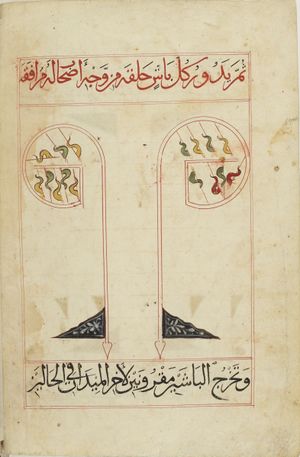 ثم يدور كل باش حلقه مزوجه أصحابه مرافقه
وتخرج الباشين مقرونين لاخر الميدان في الحالين